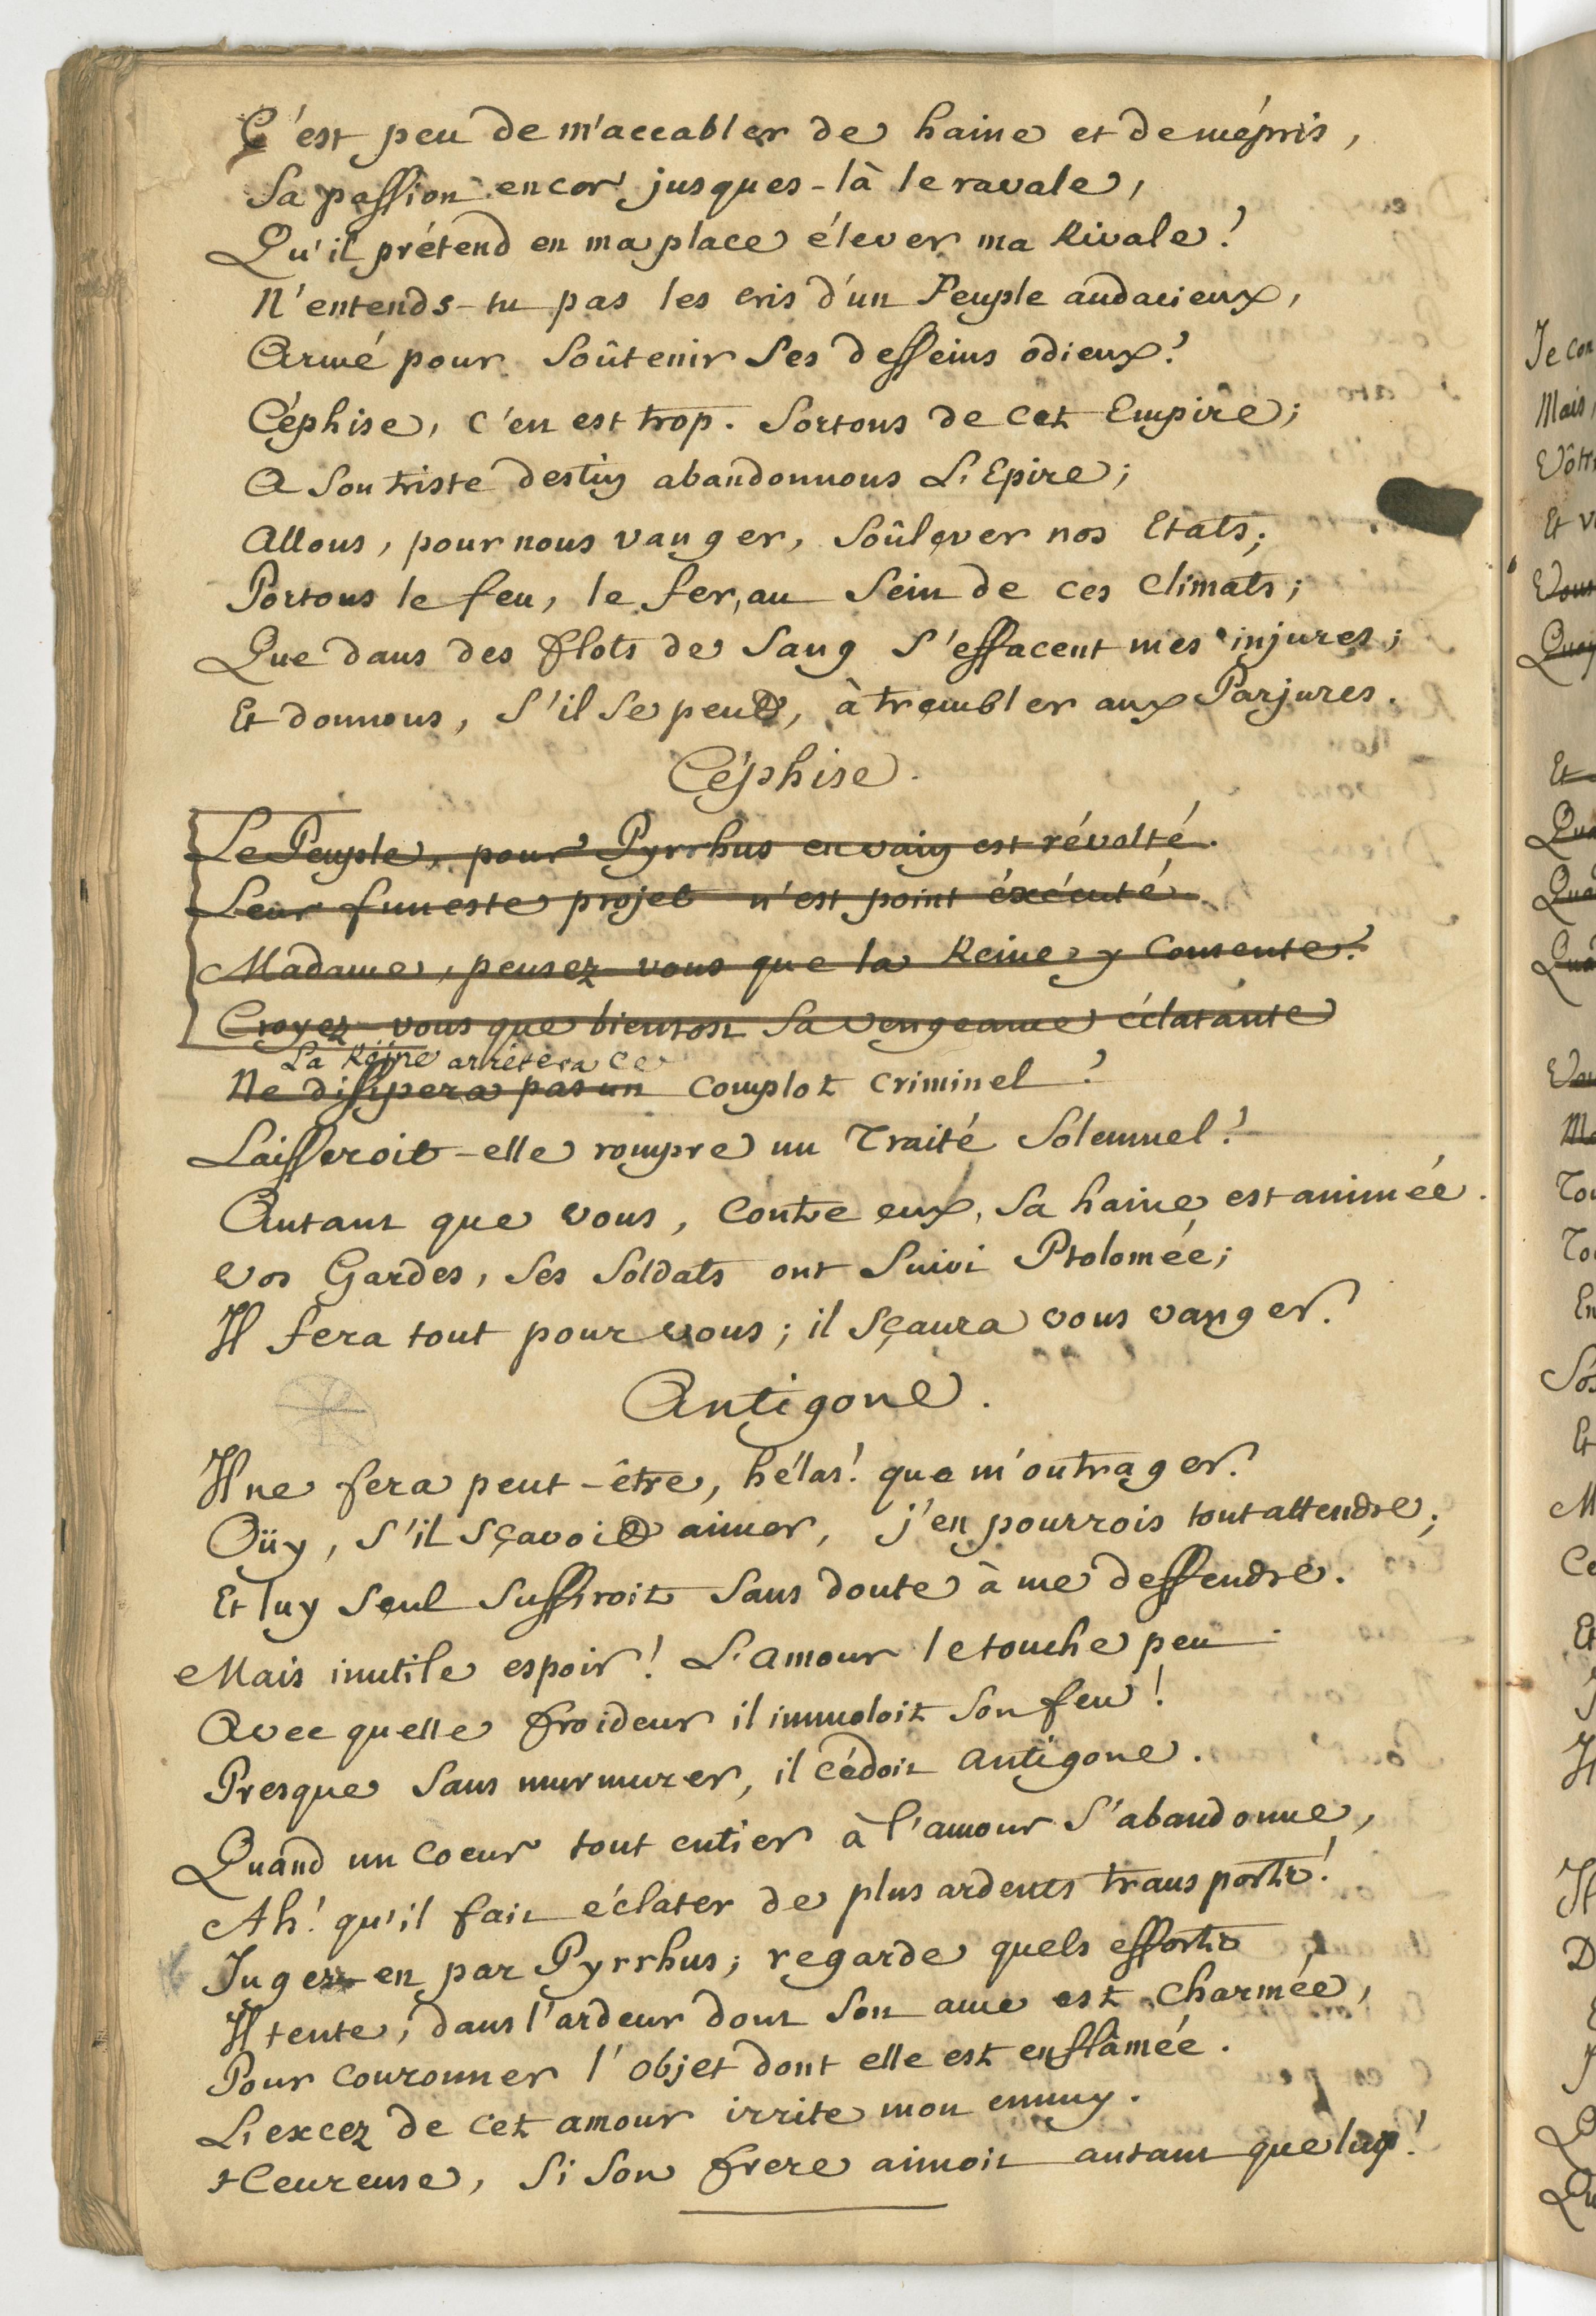 C'est peu de m'accabler de haine et de mépris,
Sa passion encor jusques-là le ravale,
Qu'il prétend en ma place élever ma Rivale!
N'entends-tu pas les cris d'un Peuple audacieux,
Armé pour soûtenir ses desseins odieux?
Céphise, c'en est trop. Sortons de cet Empire;
A son triste destin abandonnons L'Epire;
Allons, pour nous vanger, soûlever nos Etats;
Portons le feu, le fer, au sein de ces climats;
Que dans des flots de sang s'effacent mes injures;
Et donnons, s'il se peut, à trembler aux Parjures.
Céphise.
Le Peuple, pour Pyrrhus en vain est révolté.
Leur funeste projet n'est point éxécuté.
Madame, pensez-vous que la Reine y consente?
Croyez-vous que bientost sa vengeance éclatante
La Reine arrêtera ce
Ne dissipera pas un complot criminel?
Laisseroit-elle rompre un Traité solemnel?
Autant que vous, contre eux, sa haine est animée.
Vos Gardes, ses soldats ont suivi Ptolomée;
Il fera tout pour vous; il sçaura vous vanger.
Antigone.
Il ne fera peut-être, hélas! que m'outrager.
Oüy, s'il sçavoit aimer, j'en pourrois tout attendre;
Et luy seul suffiroit sans doute à me deffendre.
Mais inutile espoir! L'amour le touche peu.
Avec quelle froideur il immoloit son feu!
Presque sans murmurer, il cédoit Antigone.
Quand un coeur tout entier à l'amour s'abandonne,
Ah! qu'il fait éclater de plus ardents transports!
Juge-en par Pyrrhus; regarde quels efforts
Il tente, dans l'ardeur dont son ame est charmée,
Pour couronner l'objet dont elle est enflâmée.
L'excez de cet amour irrite mon ennuy.
Heureuse, si son frere aimoit autant que luy!